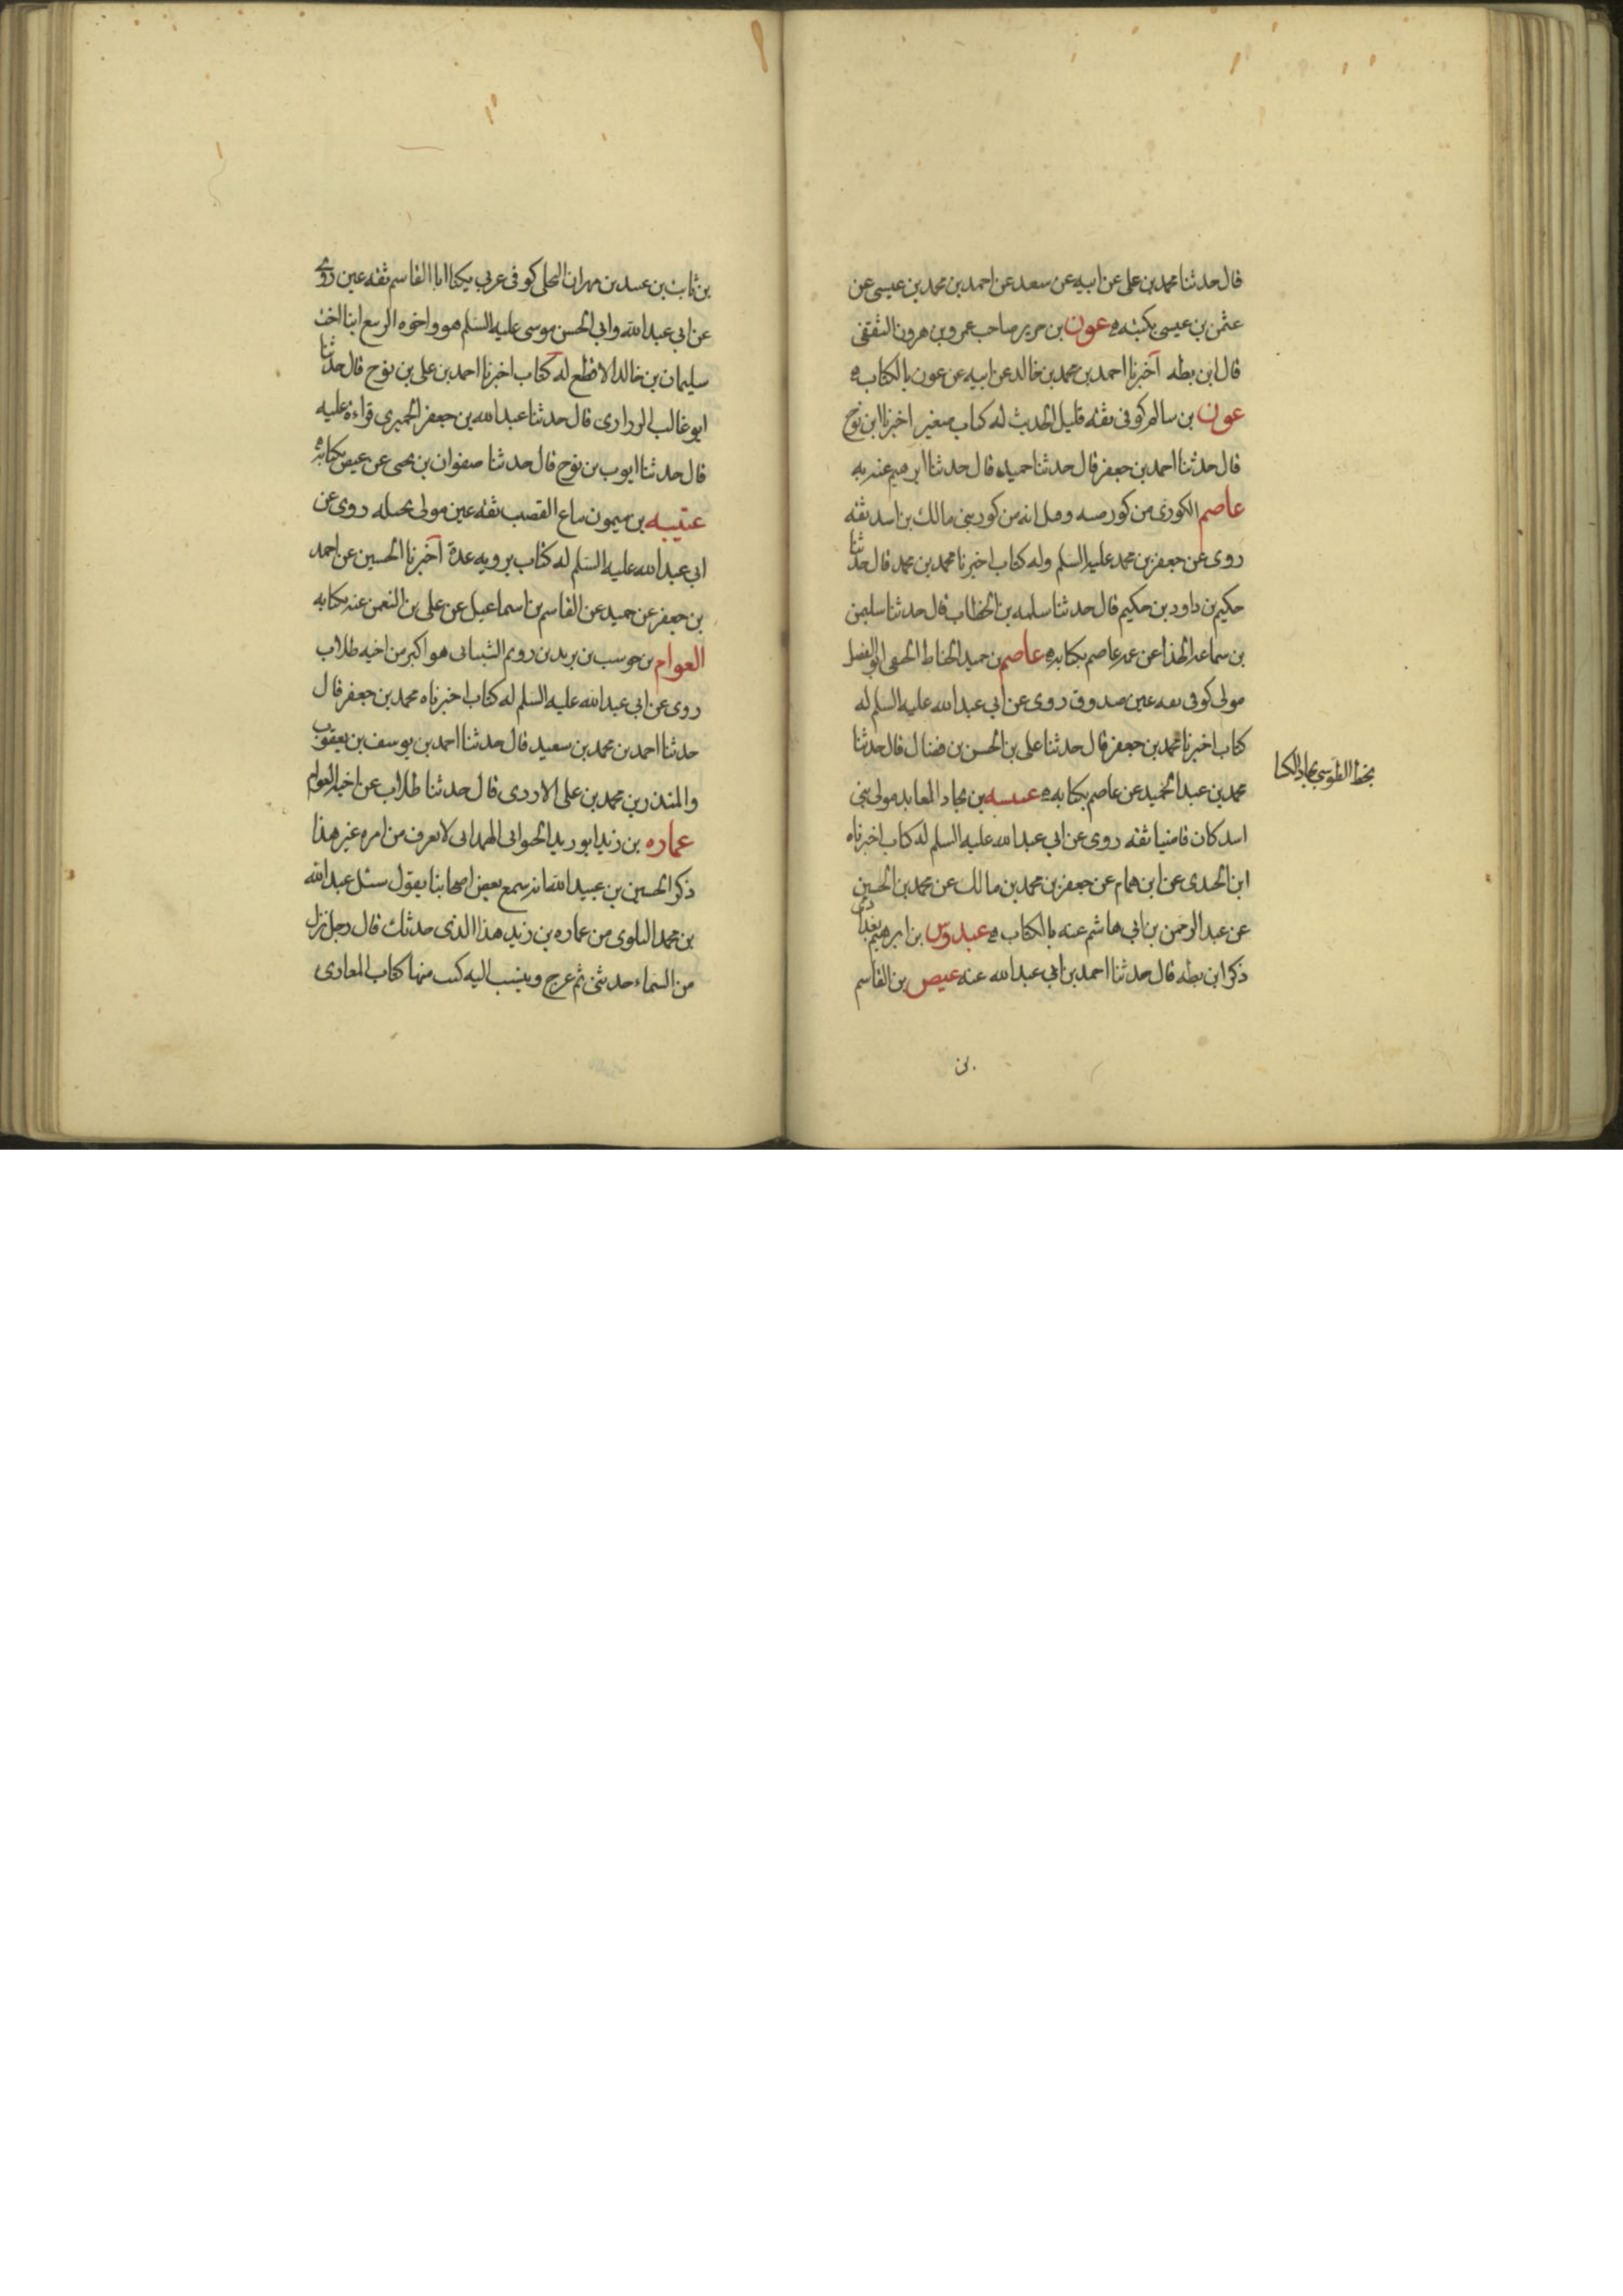 قال حدثنا محمد بن على عن ابيه عن سعد عن احمد بن محمد بن عيسى عن
عثمن بن عيسى بكتبه ه عون بن جرير صاحب عمرو بن هرون الثقفى
قال ابن بطه اخبرنا احمد بن محمد بن خالد عن ابيه عن عون بالكتاب ه
عون بن سالم كوفى ثقه قليل الحديث له كتاب صغير اخبرنا ابن نوح
قال حدثنا احمد بن جعفر قال حدثنا حميد قال حدثنا ابرهيم عنه به
عاصم الكوزى من كوز ضبه وقيل انه من كوز بنى مالك بن اسد ثقه
روى عن جعفر بن محمد عليه السلم وله كتاب اخبرنا محمد بن محمد قال حدثنا
حكيم بن داود بن حكيم قال حدثنا سلمه بن الخطاب قال حدثنا سليمن
بن سماعه الحذا عن عمه عاصم بكتابه ه عاصم بن حميد الحناط الحنفى ابو الفضل
مولى كوفى ثقه عين صدوق روى عن ابى عبد الله عليه السلم له
كتاب اخبرنا محمد بن جعفر قال حدثنا على بن الحسن بن فضال قال حدثنا
محمد بن عبد الحميد عن عاصم بكتابه ه عنبسه بن بجاد العابد مولى بنى
بخط الطوسى بجاد
اسد كان قاضيا ثقه روى عن ابى عبد الله عليه السلم له كتاب اخبرناه
ابن الجندى عن ابن همام عن جعفر بن محمد بن مالك عن محمد بن الحسين
عن عبد الرحمن بن ابى هاشم عنه بالكتاب ه عبدوس بن ابرهيم بغدادى
ذكر ابن بطه قال حدثنا احمد بن ابى عبد الله عنه عيص بن القاسم
بن
بن ثابت بن عبيد بن مهران البجلى كوفى عربى يكنا ابا القاسم ثقه عين روى
عن ابى عبد الله وابى الحسن موسى عليه السلم هو واخوه الربيع ابنا اخت
سليمان بن خالد الاقطع له كتاب اخبرنا احمد بن على بن نوح قال حدثنا
ابو غالب الزرارى قال حدثنا عبد الله بن جعفر الحميرى قراءة عليه
قال حدثنا ايوب بن نوح قال حدثنا صفوان بن يحيى عن عيص بكتابه
عتيبه بن ميمون بياع القصب ثقه عين مولى بجيله روى عن
ابى عبد الله عليه السلم له كتاب يرويه عدة اخبرنا الحسين عن احمد
بن جعفر عن حميد عن القاسم بن اسماعيل عن على بن النعمن عنه بكتابه
العوام بن حوشب بن يزيد بن رويم الشيبانى هو اكبر من اخيه طلاب
روى عن ابى عبد الله عليه السلم له كتاب اخبرناه محمد بن جعفر قال
حدثنا احمد بن محمد بن سعيد قال حدثنا احمد بن يوسف بن يعقوب
والمنذر بن محمد بن على الازدى قال حدثنا طلاب عن اخيه العوام
عماره بن زيد ابو زيد الخيوانى الهمدانى لا يعرف من امره غير هذا
ذكر الحسين بن عبيد الله انه سمع بعض اصحابنا يقول سئل عبد الله
بن محمد البلوى من عماره بن زيد هذا الذى حدثك قال رجل نزل
من السماء حدثنى ثم عرج وينسب اليه كتب منها كتاب المغازى